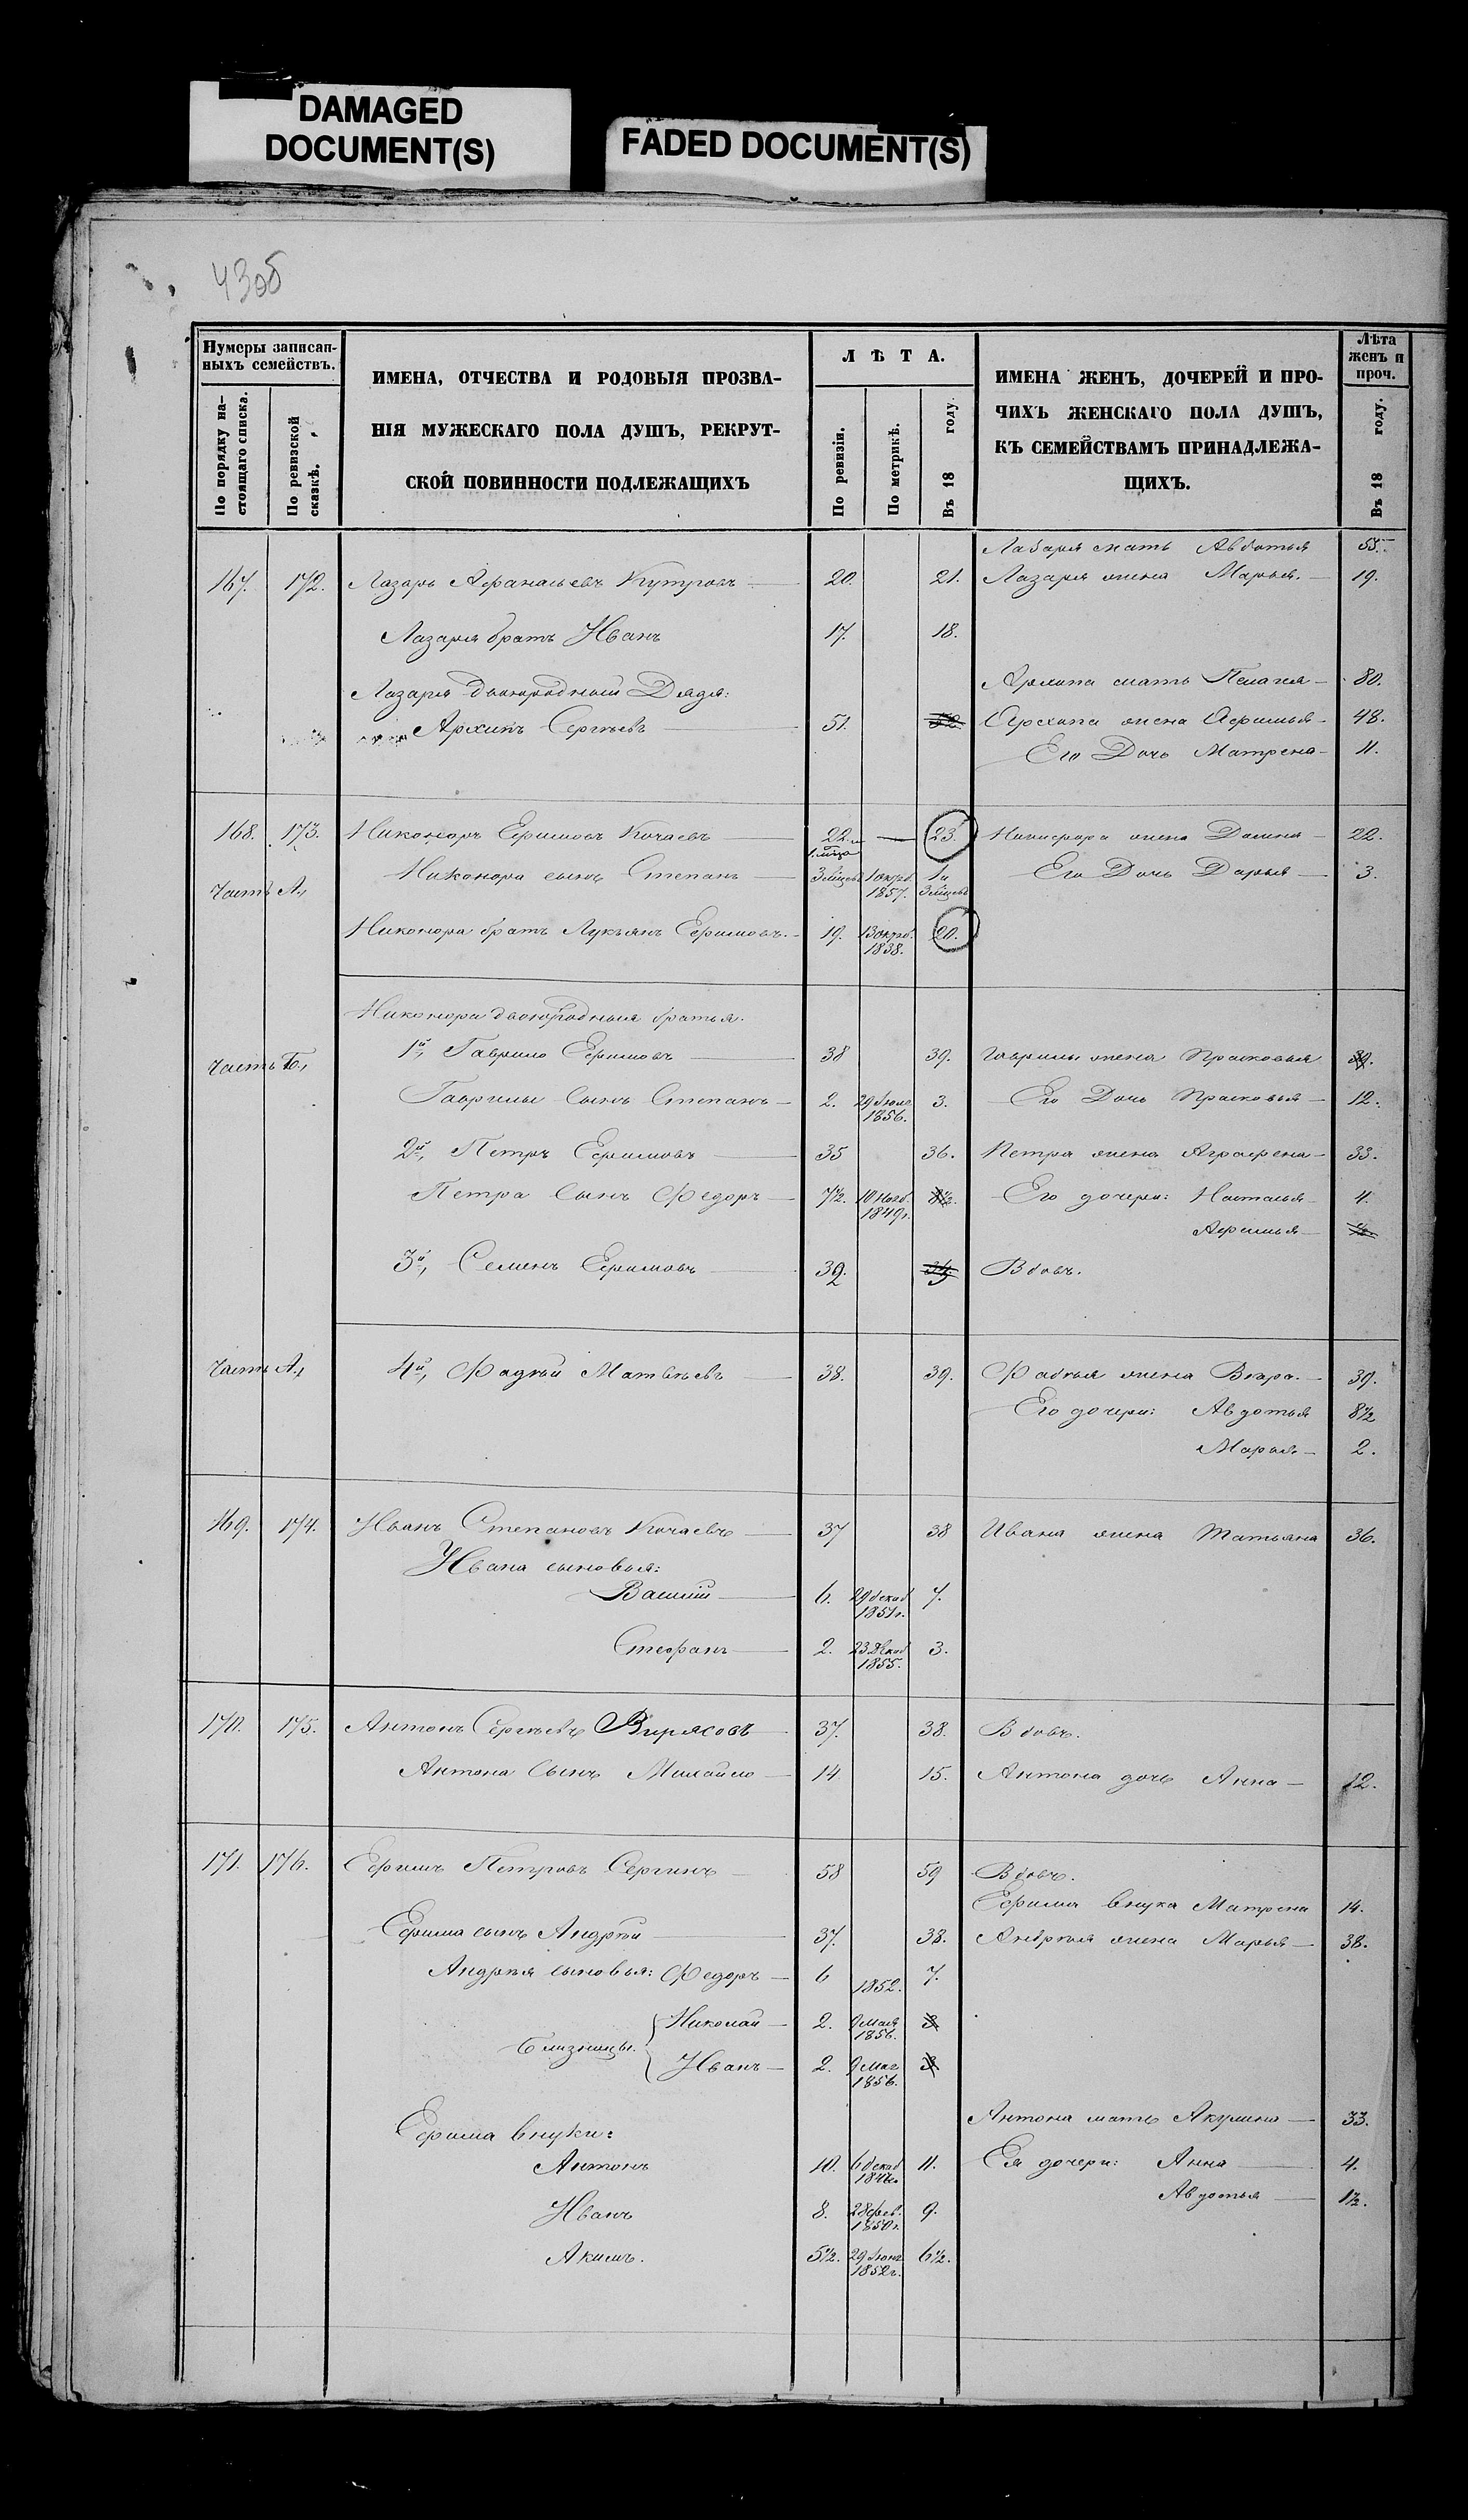 DAMAGED
DOCUMENT(S)
FADED DOCUMENT(S)
43об
Нумеры записан-
ныхъ семействъ.
По порядку на-
стоящаго списка.
По ревизской
сказкѣ.
ИМЕНА, ОТЧЕСТВА И РОДОВЫЯ ПРОЗВА-
НІЯ МУЖЕСКАГО ПОЛА ДУШЪ, РЕКРУТ-
СКОЙ ПОВИННОСТИ ПОДЛЕЖАЩИХЪ
ЛѢТА.
По ревизіи.
По метрикѣ.
Въ 18 году.
ИМЕНА ЖЕНЪ, ДОЧЕРЕЙ И ПРО-
ЧИХЪ ЖЕНСКАГО ПОЛА ДУШЪ,
КЪ СЕМЕЙСТВАМЪ ПРИНАДЛЕЖА-
ЩИХЪ.
Лѣта
женъ и
проч.
Въ 18 году.
Лазаря мать Авдотья 55.
167. 172. Лазарь Афанасьевъ Кутровъ 20. 21. Лазаря жена Марья. 19.
Лазаря братъ Иванъ 17. 18.
Лазаря двоюродный Дядя:
Архипа мать Пелагея 80.
Архипъ Сергѣевъ 51. 52. Архипа жена Афимья 48.
Его Дочь Матрена 11.
168. 173. Никоноръ Ефимовъ Кочаевъ 22. 23. Никифора жена Домна 22.
Часть А., Никонора сынъ Степанъ 3 мѣсец. 1 октяб. 1857. 1 и 3 мѣсец. Его Дочь Дарья 3.
Никонора братъ Лукьянъ Ефимовъ. 19. 13 октяб. 1838. 20.
Никонора двоюродныя братья.
Часть Б., 1й, Гаврило Ефимовъ 38 39. Гаврилы жена Прасковья 39.
Гаврилы Сынъ Степанъ 2. 29 Июля 1856. 3. Его Дочь Прасковья 12.
2й, Петръ Ефимовъ 35 36. Петра жена Аграфена 33.
Петра Сынъ Федоръ 7½. 10 нояб. 1849г. 8½. Его дочери: Наталья 4.
Афимья
3й, Семенъ Ефимовъ 32. Вдовъ.
Часть А., 4й, Фадѣй Матвѣевъ 38. 39. Фадѣя жена Вѣра. 39.
Его дочери: Авдотья 8½
Марья 2.
169. 174. Иванъ Степановъ Кочаевъ 37 38 Ивана жена Татьяна 36.
Ивана сыновья:
Василій 6. 29 декаб 1851г. 7.
Стефанъ 2. 23 Декаб 1855. 3.
170. 175. Антонъ Сергѣевъ Вирясовъ 37. 38. Вдовъ.
Антона Сынъ Михайло 14 15. Антона дочь Анна 12.
171. 176. Ефимъ Петровъ Сергинъ 58 59 Вдовъ.
Ефима внука Матрена 14.
Ефима сынъ Андрѣй 37. 38. Андрѣя жена Марья 38.
Андрѣя сыновья: Федоръ 6 1852. 7.
Близнецы. Николай 2. 9 Мая 1856. 3
Иванъ 2. 9 Мая 1856. 3
Антона мать Акулина 33.
Ефима внуки:
Антонъ 10. 6 декаб 11. Ея дочери: Анна 4.
Авдотья 1½.
Иванъ 8. 28 фев. 1850г. 9.
Акимъ. 5½. 29 Июня 1852г. 6½.